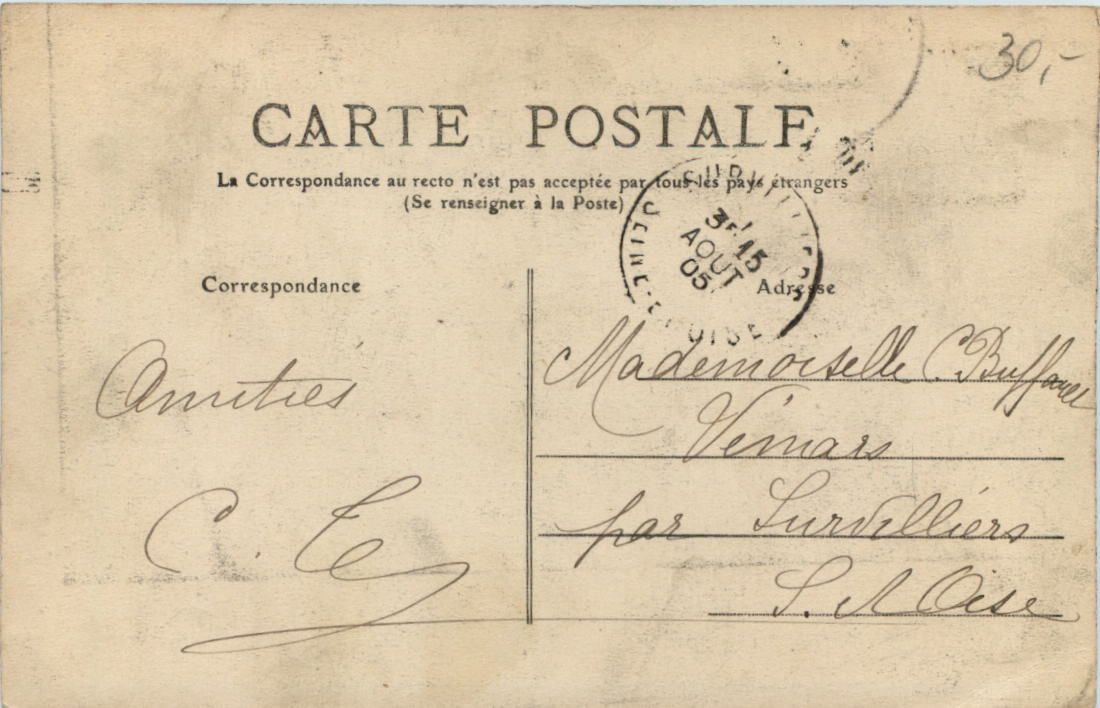 30,-
CARTE POSTALE
La Correspondance au recto n'est pas acceptée par tous les pays étrangers
(Se renseigner à la Poste)
SURVILLIERS
AOUT
05
SEINE-ET-OISE
Correspondance
Adresse
Amitiés
C. 
Mademoiselle C.
Vémars
par Survilliérs
S. et Oise